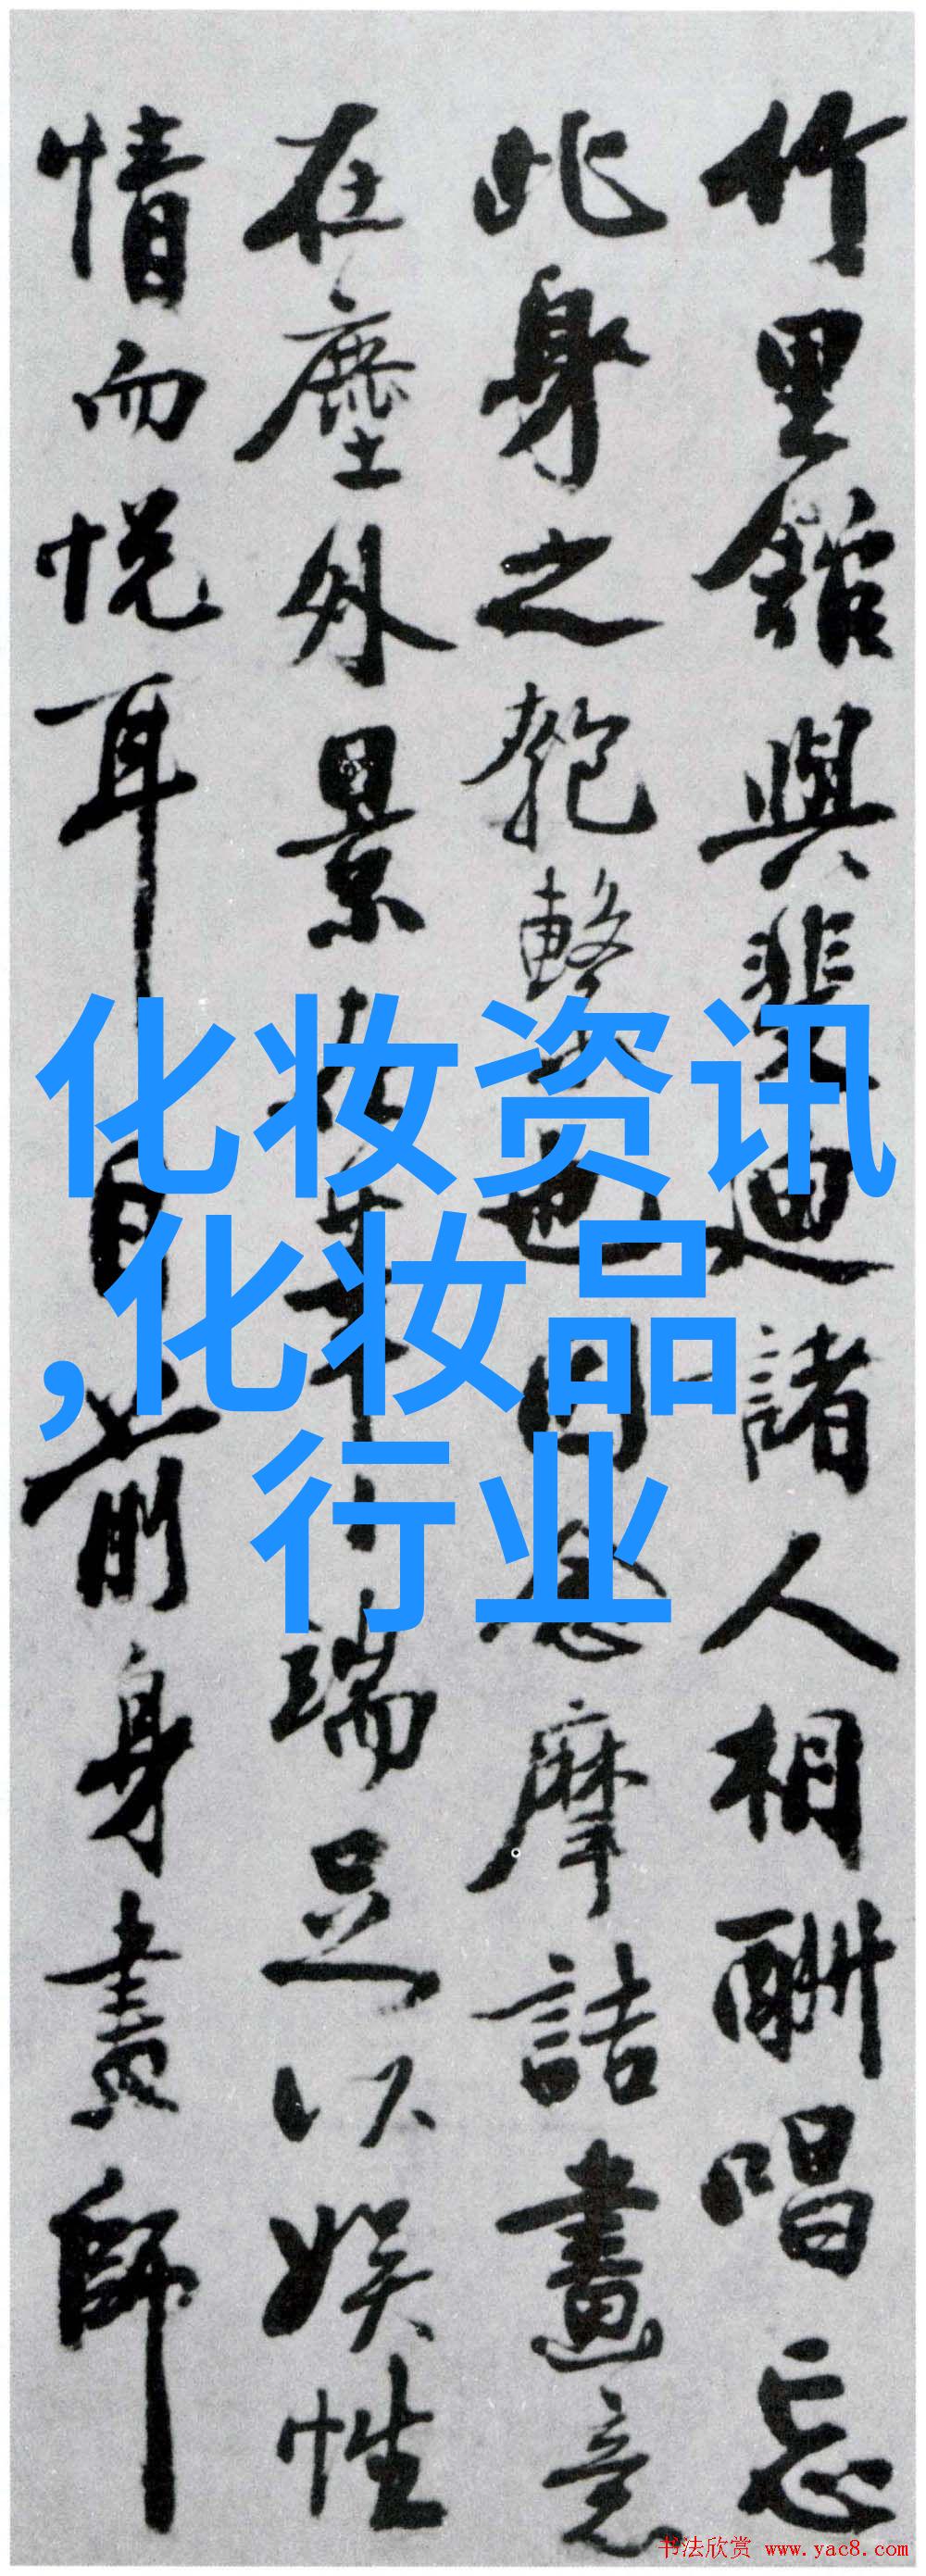 竹里館與裴迪諸人相酬唱忘
此身之匏繫也因念摩詰畫意
在塵外景在筆端足以娱性
情而悦耳目前身畫師
化妆资讯
,化妆品
行业
书法欣赏 www.yac8.com